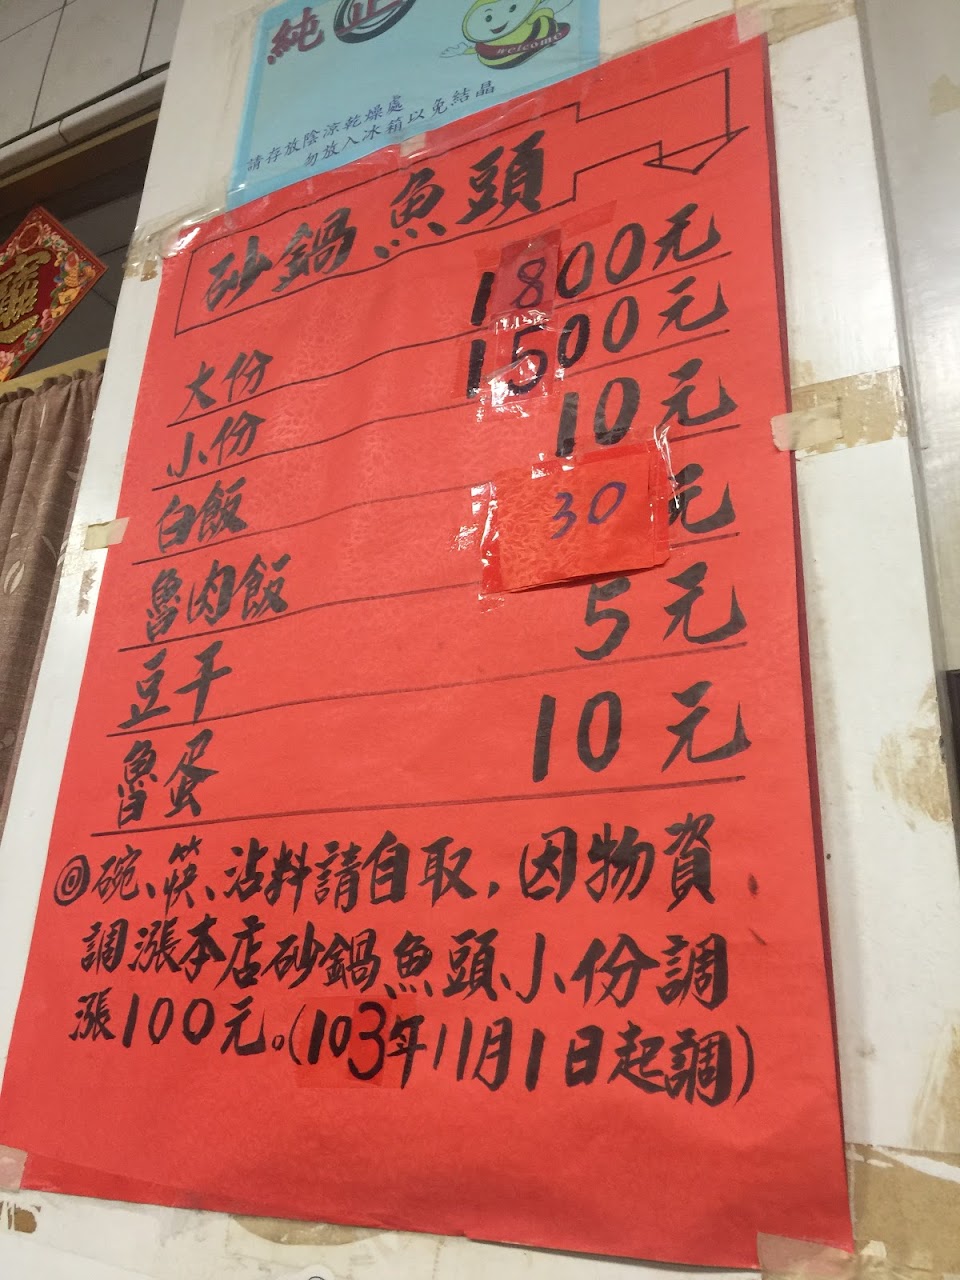 純正
welcome
請存放陰涼乾燥處
勿放入冰箱以免結晶
砂鍋魚頭
大份 1800元
小份 1500元
白飯 10元
魯肉飯 30元
豆干 5元
魯蛋 10元
◎碗、筷、沾料請自取,因物資
調漲本店砂鍋魚頭小份調
漲100元。(103年11月1日起調)